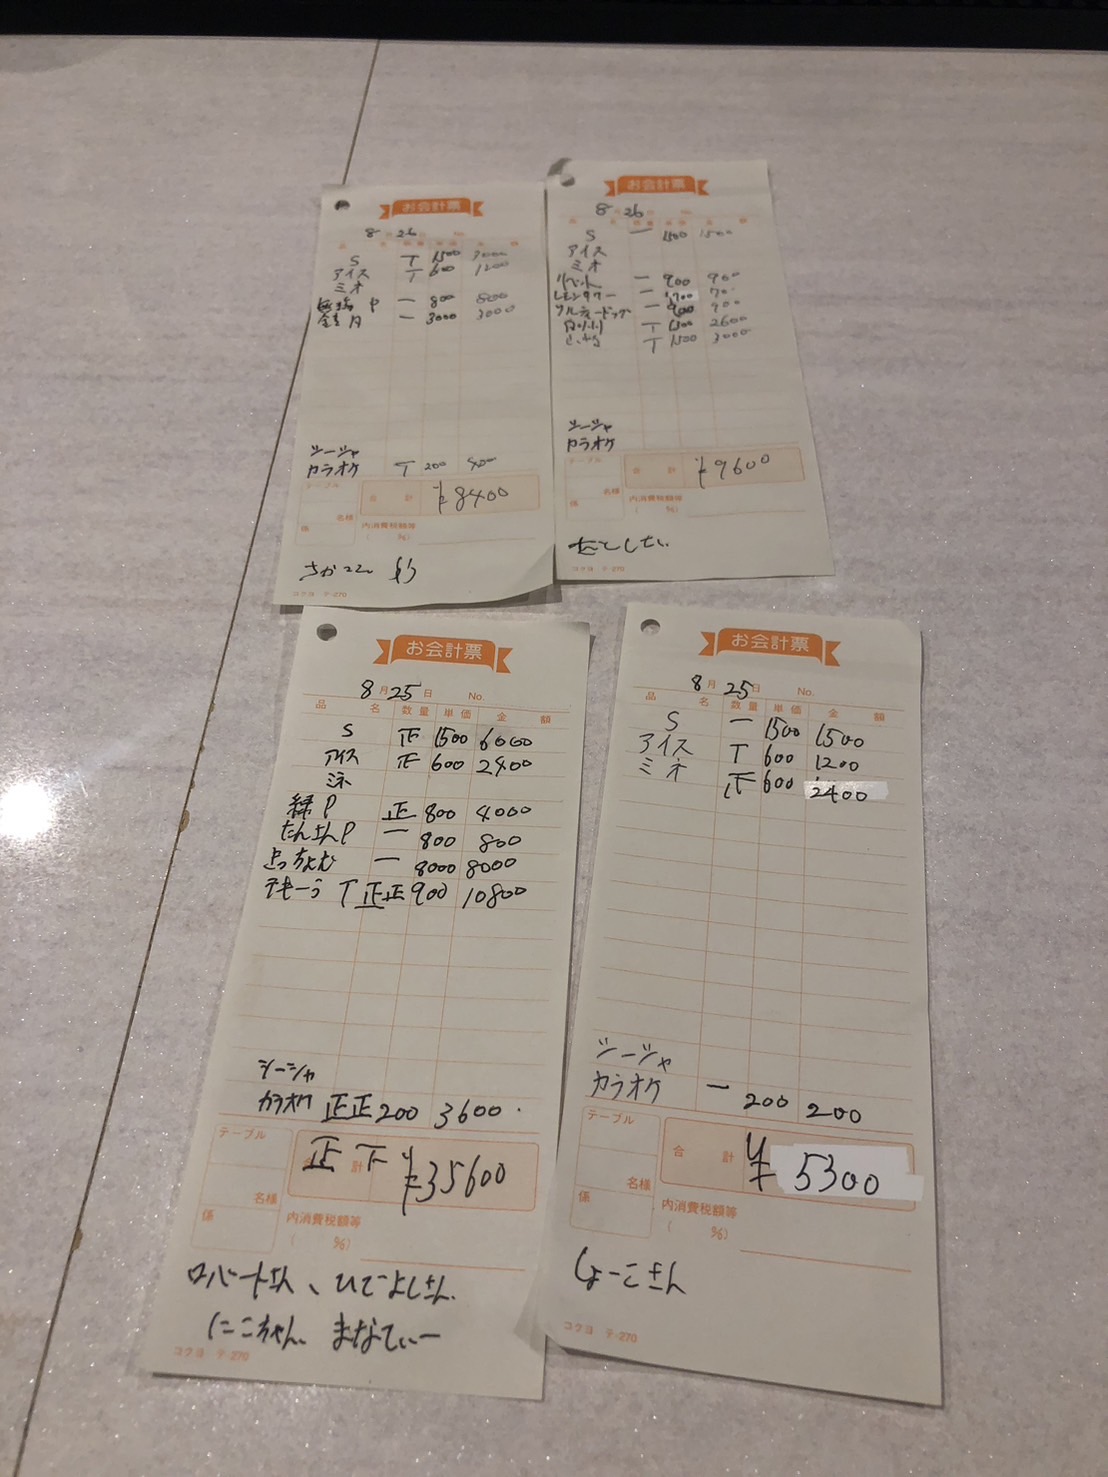 お会計票
8月 26日 No.
品 名 数量 単価 金 額
S T 1500 3000
アイス T 600 1200
ミネ
P 一 800 800
一 3000 3000
シーシャ
カラオケ T 200 400
テーブル
合 計 ¥8400
名様
係
内消費税額等
( %)
コクヨ テ-270
お会計票
8 26
S 一 1500 1500
アイス
ミネ
一 900 900
一 700 700
一 900 900
T 1300 2600
T 1500 3000
シーシャ
カラオケ
テーブル
合 計 ¥9600
名様
係
内消費税額等
( %)
コクヨ テ-270
お会計票
8月25日 No.
品 名 数量 単価 金 額
S 正 1500 6000
アイス 正 600 2400
ミネ
緑P 正 800 4000
たんさんP 一 800 800
一 8000 8000
テキーラ T正正 900 10800
シーシャ
カラオケ 正正 200 3600
テーブル
合 計 正下 ¥35600
名様
係
内消費税額等
( %)
ロバートさん、ひでよしさん、
にこちゃん、まなてぃー
コクヨ テ-270
お会計票
8月25日 No.
品 名 数量 単価 金 額
S 一 1500 1500
アイス T 600 1200
ミネ 正 600 2400
シーシャ
カラオケ 一 200 200
テーブル
合 計 ¥5300
名様
係
内消費税額等
( %)
しょーこさん
コクヨ テ-270